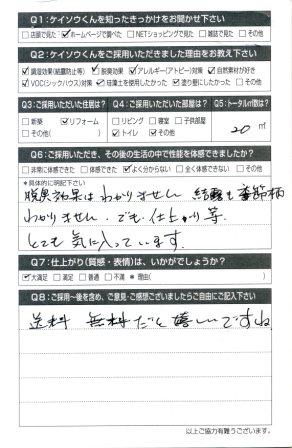 Q1:ケイソウくんを知ったきっかけをお聞かせ下さい
□店頭で見た ☑ホームページで調べた □NETショッピングで見た □雑誌で見た □その他
Q2:ケイソウくんをご採用いただきました理由をお教え下さい
☑調湿効果(結露防止等) ☑脱臭効果 ☑アレルギー(アトピー)対策 ☑自然素材が好き
☑VOC(シックハウス)対策 ☑珪藻土を使用したかった ☑塗り壁にしたかった □その他
Q3:ご採用いただいた住居は?
□新築 ☑リフォーム
□その他( )
Q4:ご採用いただいた部屋は?
□リビング □寝室 □子供部屋
☑トイレ ☑その他
Q5:トータル㎡数は?
20 ㎡
Q6:ご採用いただき、その後の生活の中で性能を体感できましたか?
□非常に体感できた □体感できた ☑よく分からない □全く体感できない □その他
*具体的に明記下さい
脱臭効果はわかりません 結露も季節柄
わかりません。でも仕上り等
とても気に入っています。
Q7:仕上がり(質感・表情)は、いかがでしょうか?
☑大満足 □満足 □普通 □不満 *理由( )
Q8:ご採用〜後を含め、ご意見・ご感想ございましたらご自由にご記入下さい
送料 無料だと嬉しいですね
以上ご協力有難うございます。